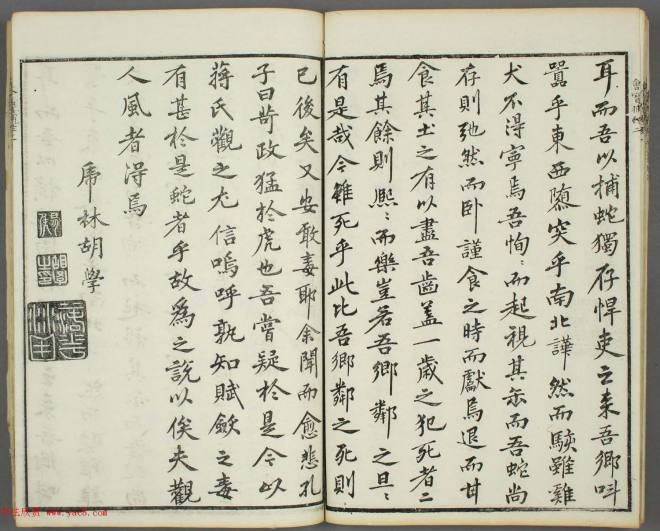 耳而吾以捕蛇獨存悍吏之来吾鄉叫
嚣乎東西隳突乎南北譁然而駭雖雞
犬不得寧焉吾恂〻而起視其缶而吾蛇尚
存則弛然而卧謹食之時而獻焉退而甘
食其土之有以盡吾齒盖一歲之犯死者二
焉其餘則熈〻而樂豈若吾鄉鄰之旦〻
有是哉今雖死乎此比吾鄉鄰之死則
已後矣又安敢毒耶余聞而愈悲孔
子曰苛政猛於虎也吾嘗疑於是今以
蒋氏觀之尤信嗚呼孰知賦斂之毒
有甚於是蛇者乎故為之說以俟夫觀
人風者淂焉
虎林胡學
www.yac8.com